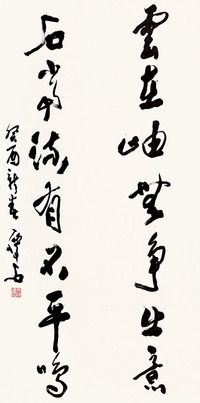 雲在岫無争出意
石當流有不平鳴
癸酉新春